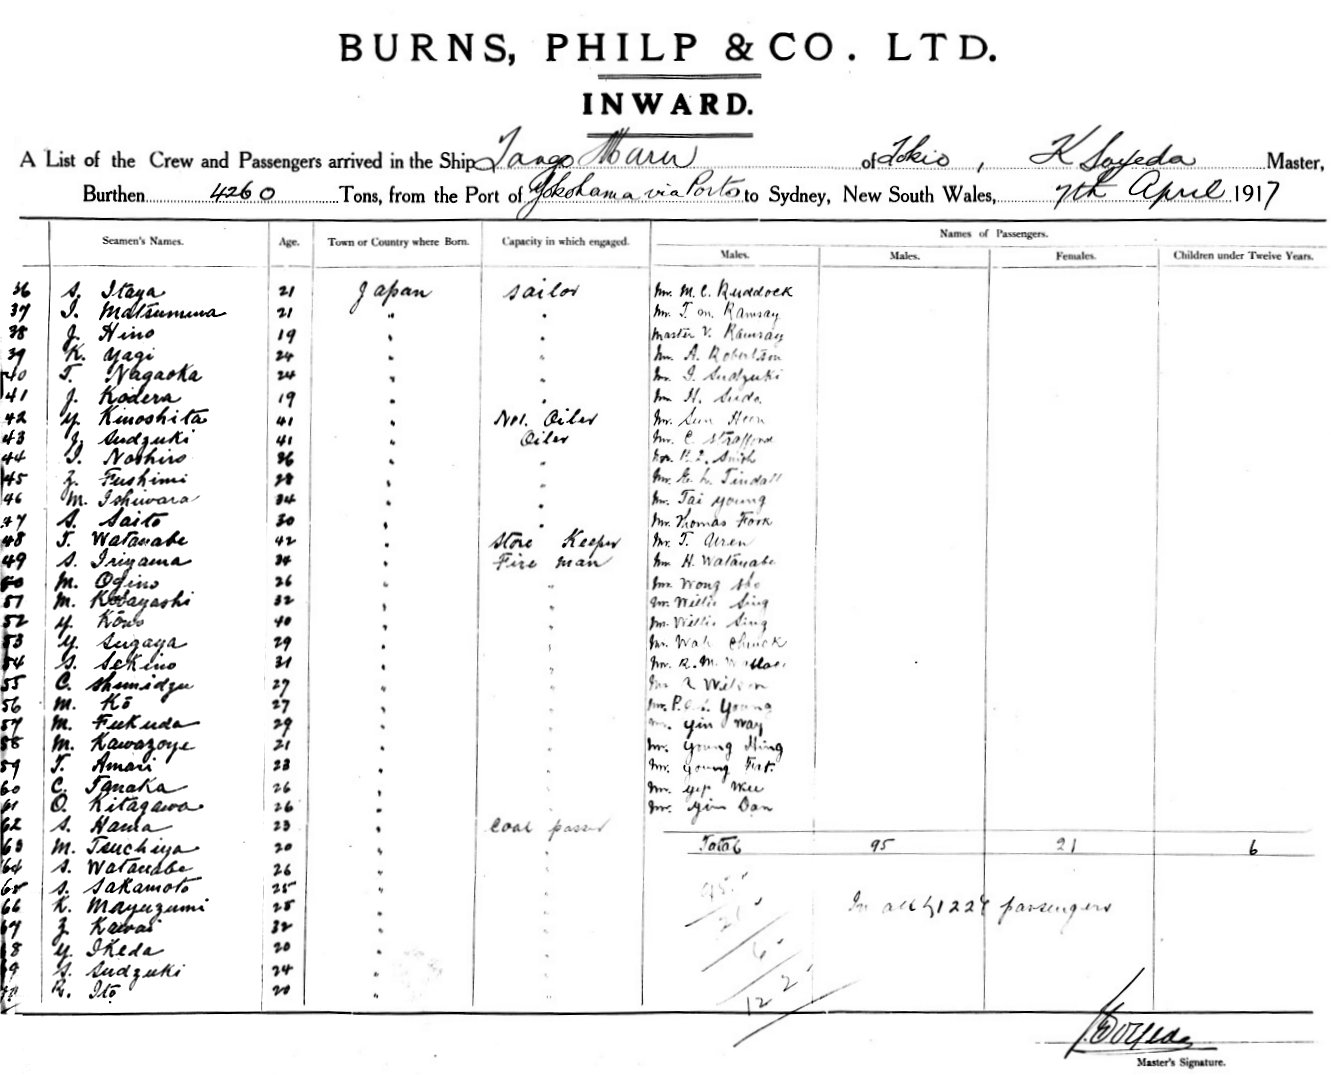 BURNS, PHILP & CO. LTD.
INWARD.
A List of the Crew and Passengers arrived in the Ship Tango Maru of Tokio, K Soyeda Master,
Burthen 4260 Tons, from the Port of Yokohama via Ports to Sydney, New South Wales, 7th April 1917
Names of Passengers.
Seamen's Names. Age. Town or Country where Born. Capacity in which engaged. Males. Males. Females. Children under Twelve Years.
36 S. Itaya 21 Japan sailor Mr. M. C. Ruddock
37 I. Matsumura 21 " " Mr. T. M. Ramsay
38 J. Hino 19 " " Master V. Ramsay
39 K. Yagi 24 " " Mr. A. Robertson
40 T. Nagaoka 24 " " Mr. I. Sudzuki
41 J. Kodera 19 " " Mr. H. Sudo
42 Y. Kinoshita 41 " No1. Oiler Mr. Sun Hoon
43 J. Sudzuki 41 " Oiler Mr. C. Strafford
44 I. Noshiro 36 " " Mr. P. L. Smith
45 Z. Fushimi 28 " " Mr. L. Tindall
46 M. Ishiwara 34 " " Mr. Tai Young
47 S. Saito 30 " " Mr. Thomas Fook
48 T. Watanabe 42 " Store Keeper Mr. T. Uren
49 S. Iriyama 34 " Fire man Mr. H. Watanabe
50 M. Ogino 26 " " Mr. Wong
51 M. Kobayashi 32 " " Mr. Willie Sing
52 Y. Kōno 40 " " Mr. Willie Sing
53 Y. Sugaya 29 " " Mr. Wah Chuck
54 S. Sekino 31 " " Mr. R. M. Wallace
55 C. Shimidzu 27 " " Mr. Wilson
56 M. Kō 27 " " Mr. Young
57 M. Fukuda 29 " " Mr. Yin Way
58 M. Kawazoye 21 " " Mr. Young Hing
59 T. Amari 23 " " Mr. Young Fort.
60 C. Tanaka 26 " " Mr. Yep Wee
61 O. Kitagawa 26 " " Mr. Yin Dan
62 S. Hama 23 " Coal passer
63 M. Tsuchiya 20 " " Total 95 21 6
64 S. Watanabe 26 " "
65 S. Sakamoto 25 " " 95
66 K. Mayuzumi 25 " " In all 122 passengers
67 Z. Kawai 32 " " 21
68 Y. Ikeda 20 " " 6
69 S. Sudzuki 24 " "
70 R. Ito 20 " " 122
K. Soyeda
Master's Signature.